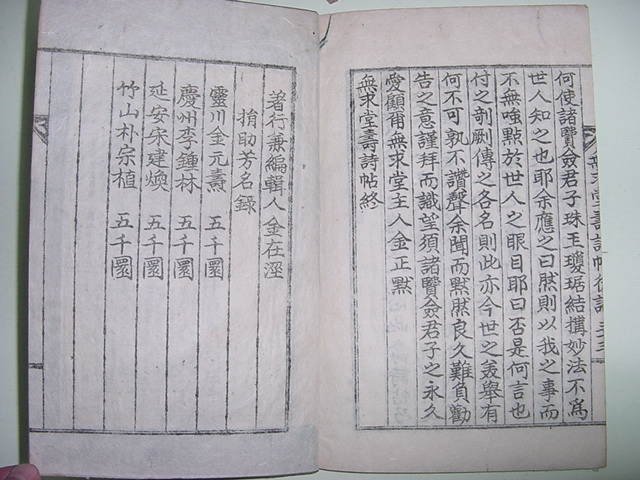 何使諸賢僉君子珠玉瓊琚結搆妙法不爲
世人知之也耶余應之曰然則以我之事而
不無唉點於世人之眼目耶曰否是何言也
付之剞劂傳之各名則此亦今世之羙舉有
何不可孰不讚聲余聞而黙然良久難負勸
告之意謹拜而識望須諸賢僉君子之永久
愛顧爾無求堂主人金正黙
無求堂壽詩帖終
無求堂壽詩帖後記
著行兼編輯人金在溼
捐助芳名錄
靈川金元燾 五千圜
慶州李鍾林 五千圜
延安宋建煥 五千圜
竹山朴宗植 五千圜